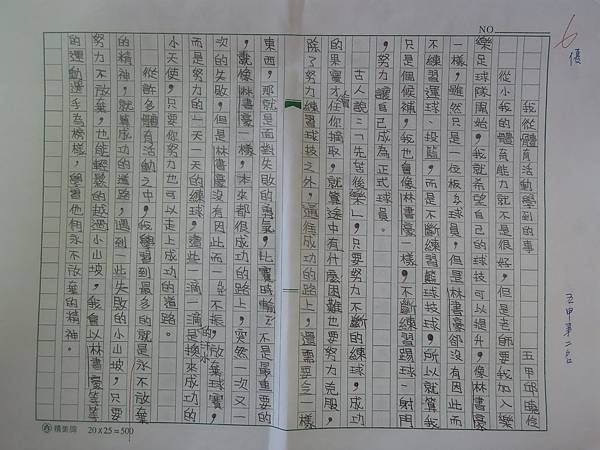 NO.
6
優
五甲第二名
我從體育活動學到的事
五甲邱曉伶
從小我的體育能力就不是很好,但是老師要我加入樂
樂足球隊開始,我就希望自己的球技可以提升,像林書豪
一樣,雖然只是一位板凳球員,但是林書豪卻沒有因此而
不練習運球、投籃,而是不斷練習籃球技球,所以就算我
只是個候補,我也會像林書豪一樣,不斷練習踢球、射門
,努力讓自己成為正式球員。
古人說:「先苦後樂」,只要努力不斷的練球,成功
的果實才會任你摘取,就算途中有什麼困難也要努力克服,
除了努力練習球技之外,通往成功的路上,還需要一樣
東西,那就是面對失敗的勇氣,比賽時輸了不是最重要的
,就像林書豪一樣,本來都很成功的路上,突然一次又一
次的失敗,但是林書豪沒有因此而一蹶不振,放棄球賽,
而是努力的一天一天的練球,這些一滴一滴的汗水是換來成功的
小天使,只要你努力也可以走上成功的道路。
從許多體育活動之中,我學習到最多的就是永不放棄
的精神,就算成功的道路,遇到一些失敗的小山坡,只要
努力不放棄,也能輕鬆的越過小山坡,我會以林書豪等等
的運動選手為榜樣,學習他們永不放棄的精神。
積美牌 20×25=500